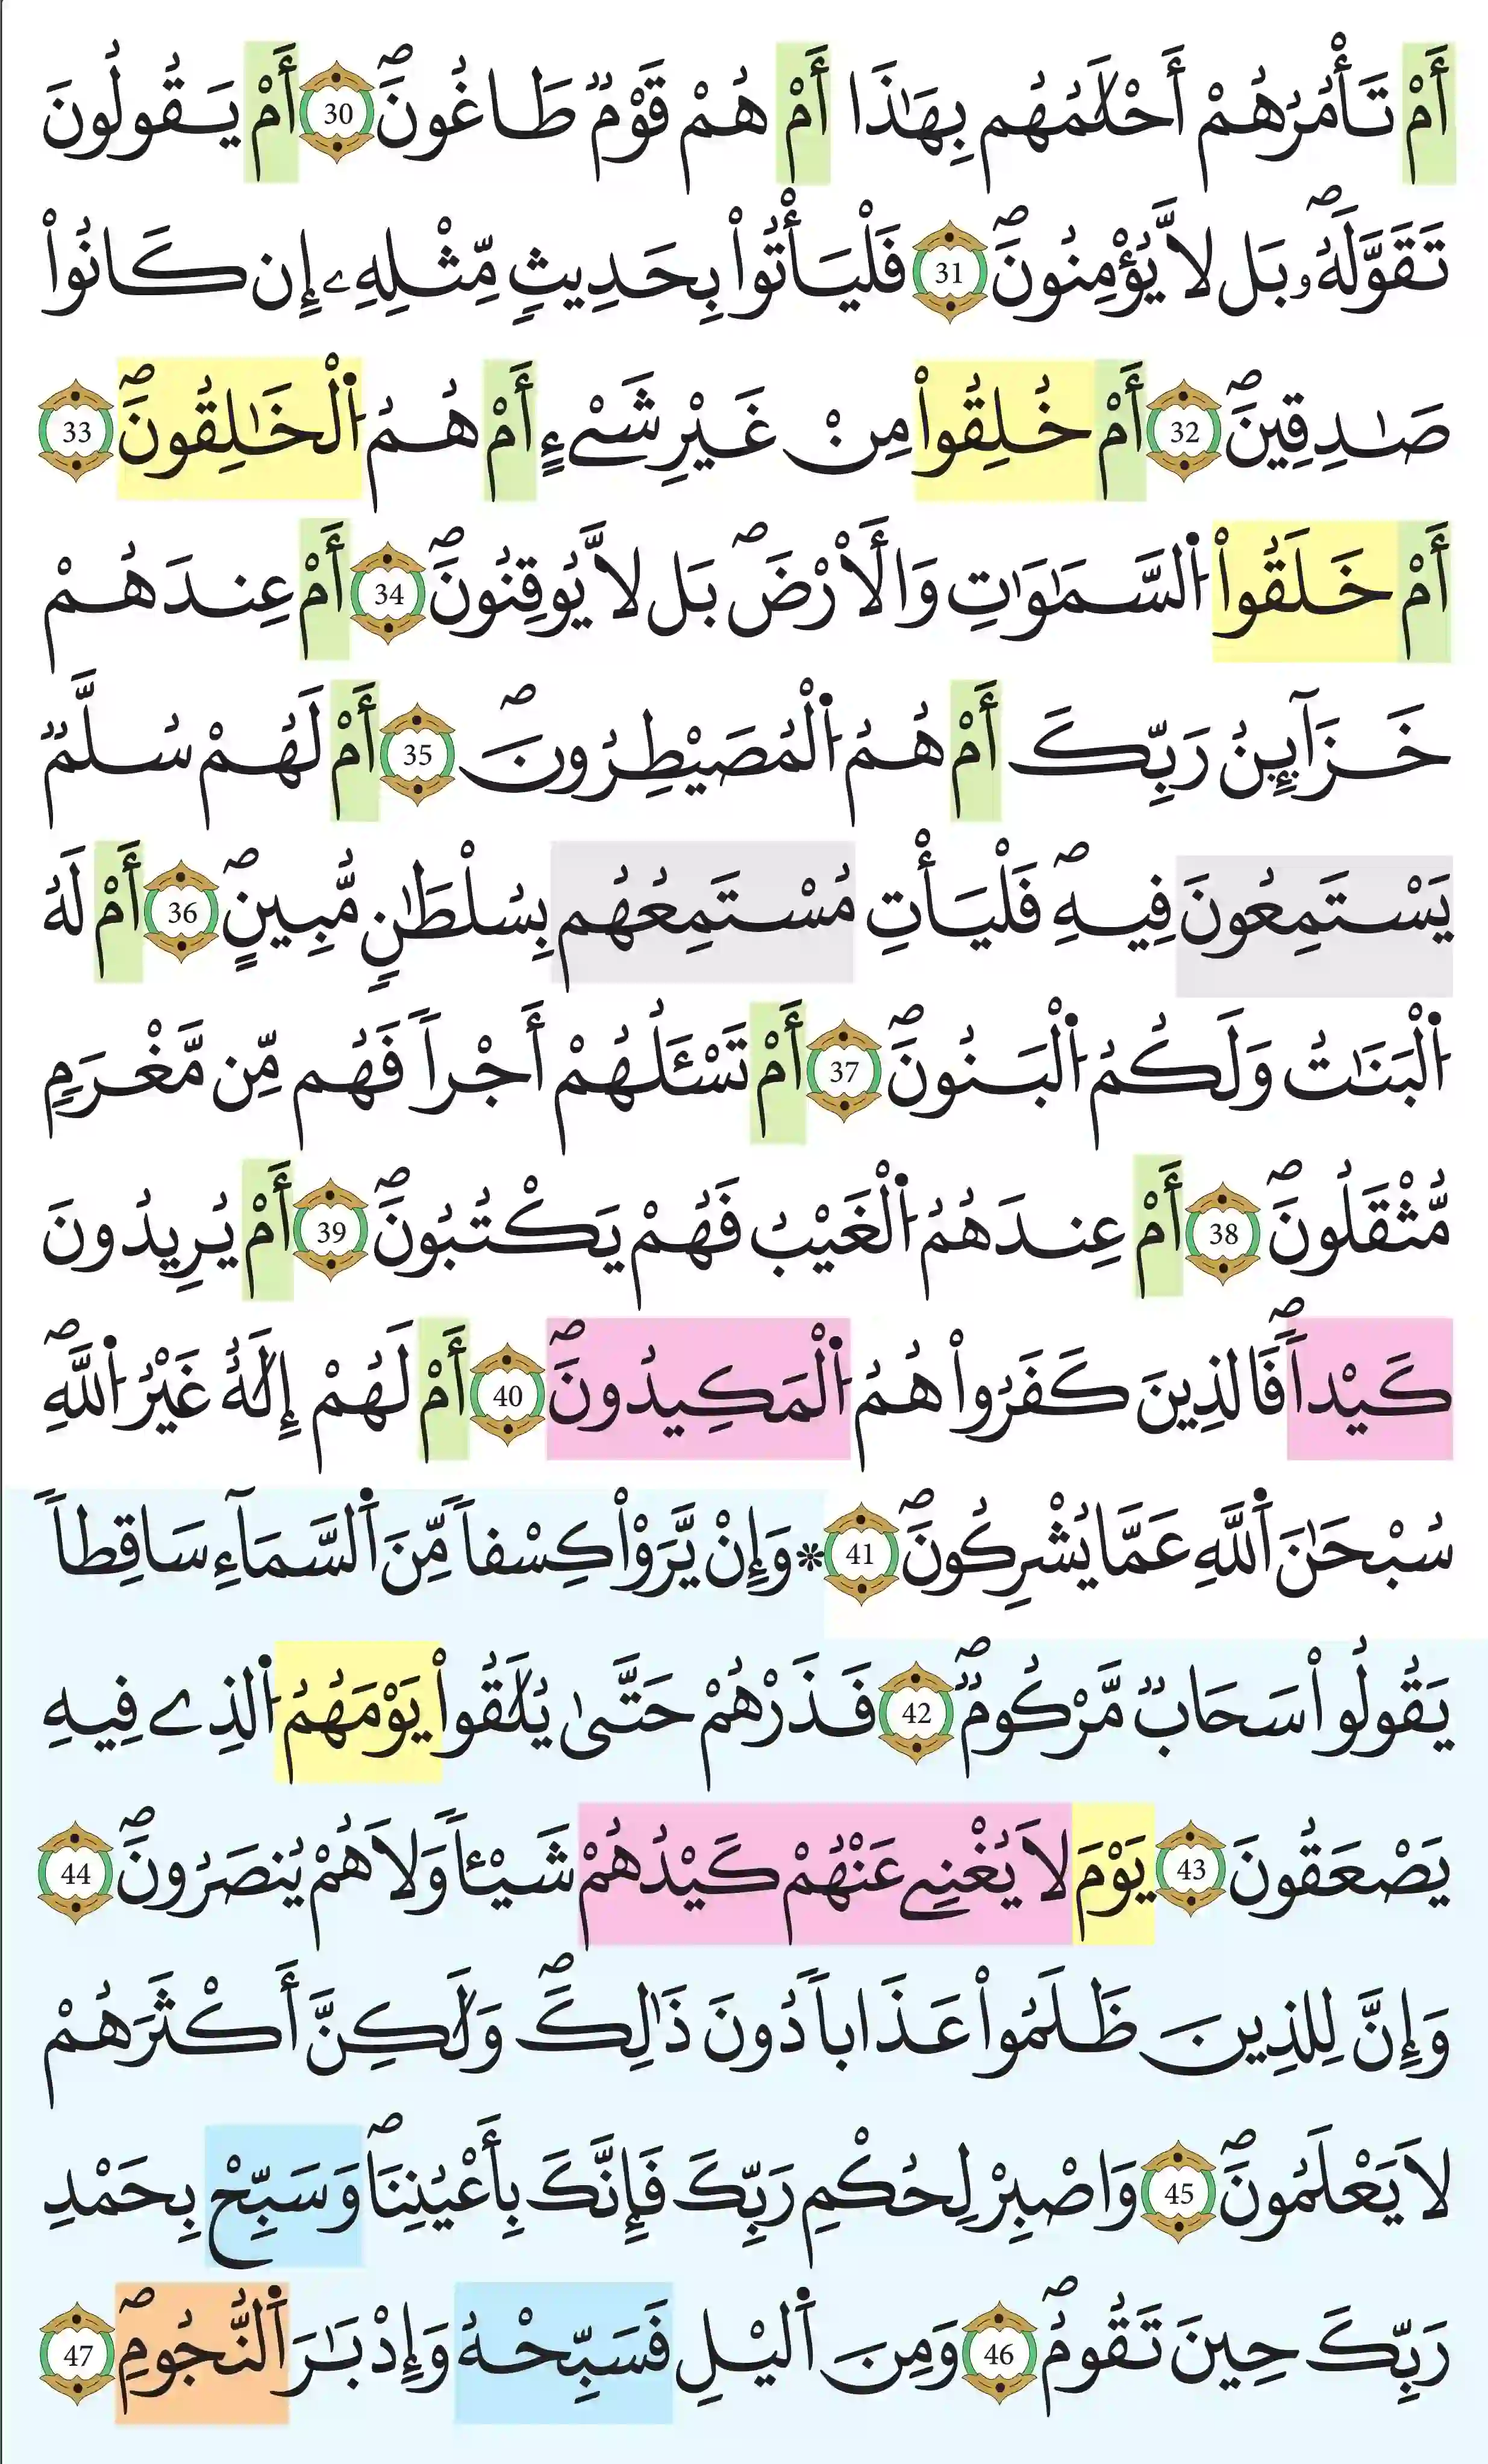 أَمْ تَأْمُرُهُمْ أَحْلَٰمُهُم بِهَٰذَا أَمْ هُمْ قَوْمٞ طَاغُونَۖ 30 أَمْ يَقُولُونَ
تَقَوَّلَهُۥۖ بَل لَّا يُؤْمِنُونَۖ 31 فَلْيَأْتُواْ بِحَدِيثٖ مِّثْلِهِۦ إِن كَانُواْ
صَٰدِقِينَۖ 32 أَمْ خُلِقُواْ مِنْ غَيْرِ شَےْءٍ أَمْ هُمُ اُ۬لْخَٰلِقُونَۖ 33
أَمْ خَلَقُواْ اُ۬لسَّمَٰوَٰتِ وَالَارْضَۖ بَل لَّا يُوقِنُونَۖ 34 أَمْ عِندَهُمْ
خَزَآئِنُ رَبِّكَ أَمْ هُمُ اُ۬لْمُصَيْطِرُونَۖ 35 أَمْ لَهُمْ سُلَّمٞ
يَسْتَمِعُونَ فِيهِۖ فَلْيَأْتِ مُسْتَمِعُهُم بِسُلْطَٰنٖ مُّبِينٍۖ 36 أَمْ لَهُ
اُ۬لْبَنَٰتُ وَلَكُمُ اُ۬لْبَنُونَۖ 37 أَمْ تَسْـَٔلُهُمْ أَجْراٗ فَهُم مِّن مَّغْرَمٖ
مُّثْقَلُونَۖ 38 أَمْ عِندَهُمُ اُ۬لْغَيْبُ فَهُمْ يَكْتُبُونَۖ 39 أَمْ يُرِيدُونَ
كَيْداٗۖ فَالذِينَ كَفَرُواْ هُمُ اُ۬لْمَكِيدُونَۖ 40 أَمْ لَهُمْ إِلَٰهٌ غَيْرُ اُ۬للَّهِۖ
سُبْحَٰنَ اَ۬للَّهِ عَمَّا يُشْرِكُونَۖ 41 ۞ وَإِنْ يَّرَوْاْ كِسْفاٗ مِّنَ اَ۬لسَّمَآءِ سَاقِطاٗ
يَقُولُواْ سَحَابٞ مَّرْكُومٞۖ 42 فَذَرْهُمْ حَتَّىٰ يُلَٰقُواْ يَوْمَهُمُ اُ۬لذِے فِيهِ
يَصْعَقُونَ 43 يَوْمَ لَا يُغْنِے عَنْهُمْ كَيْدُهُمْ شَيْـٔاٗ وَلَا هُمْ يُنصَرُونَۖ 44
وَإِنَّ لِلذِينَ ظَلَمُواْ عَذَاباٗ دُونَ ذَٰلِكَۖ وَلَٰكِنَّ أَكْثَرَهُمْ
لَا يَعْلَمُونَۖ 45 وَاصْبِرْ لِحُكْمِ رَبِّكَ فَإِنَّكَ بِأَعْيُنِنَاۖ وَسَبِّحْ بِحَمْدِ
رَبِّكَ حِينَ تَقُومُۖ 46 وَمِنَ اَ۬ليْلِ فَسَبِّحْهُ وَإِدْبَٰرَ اَ۬لنُّجُومِۖ 47